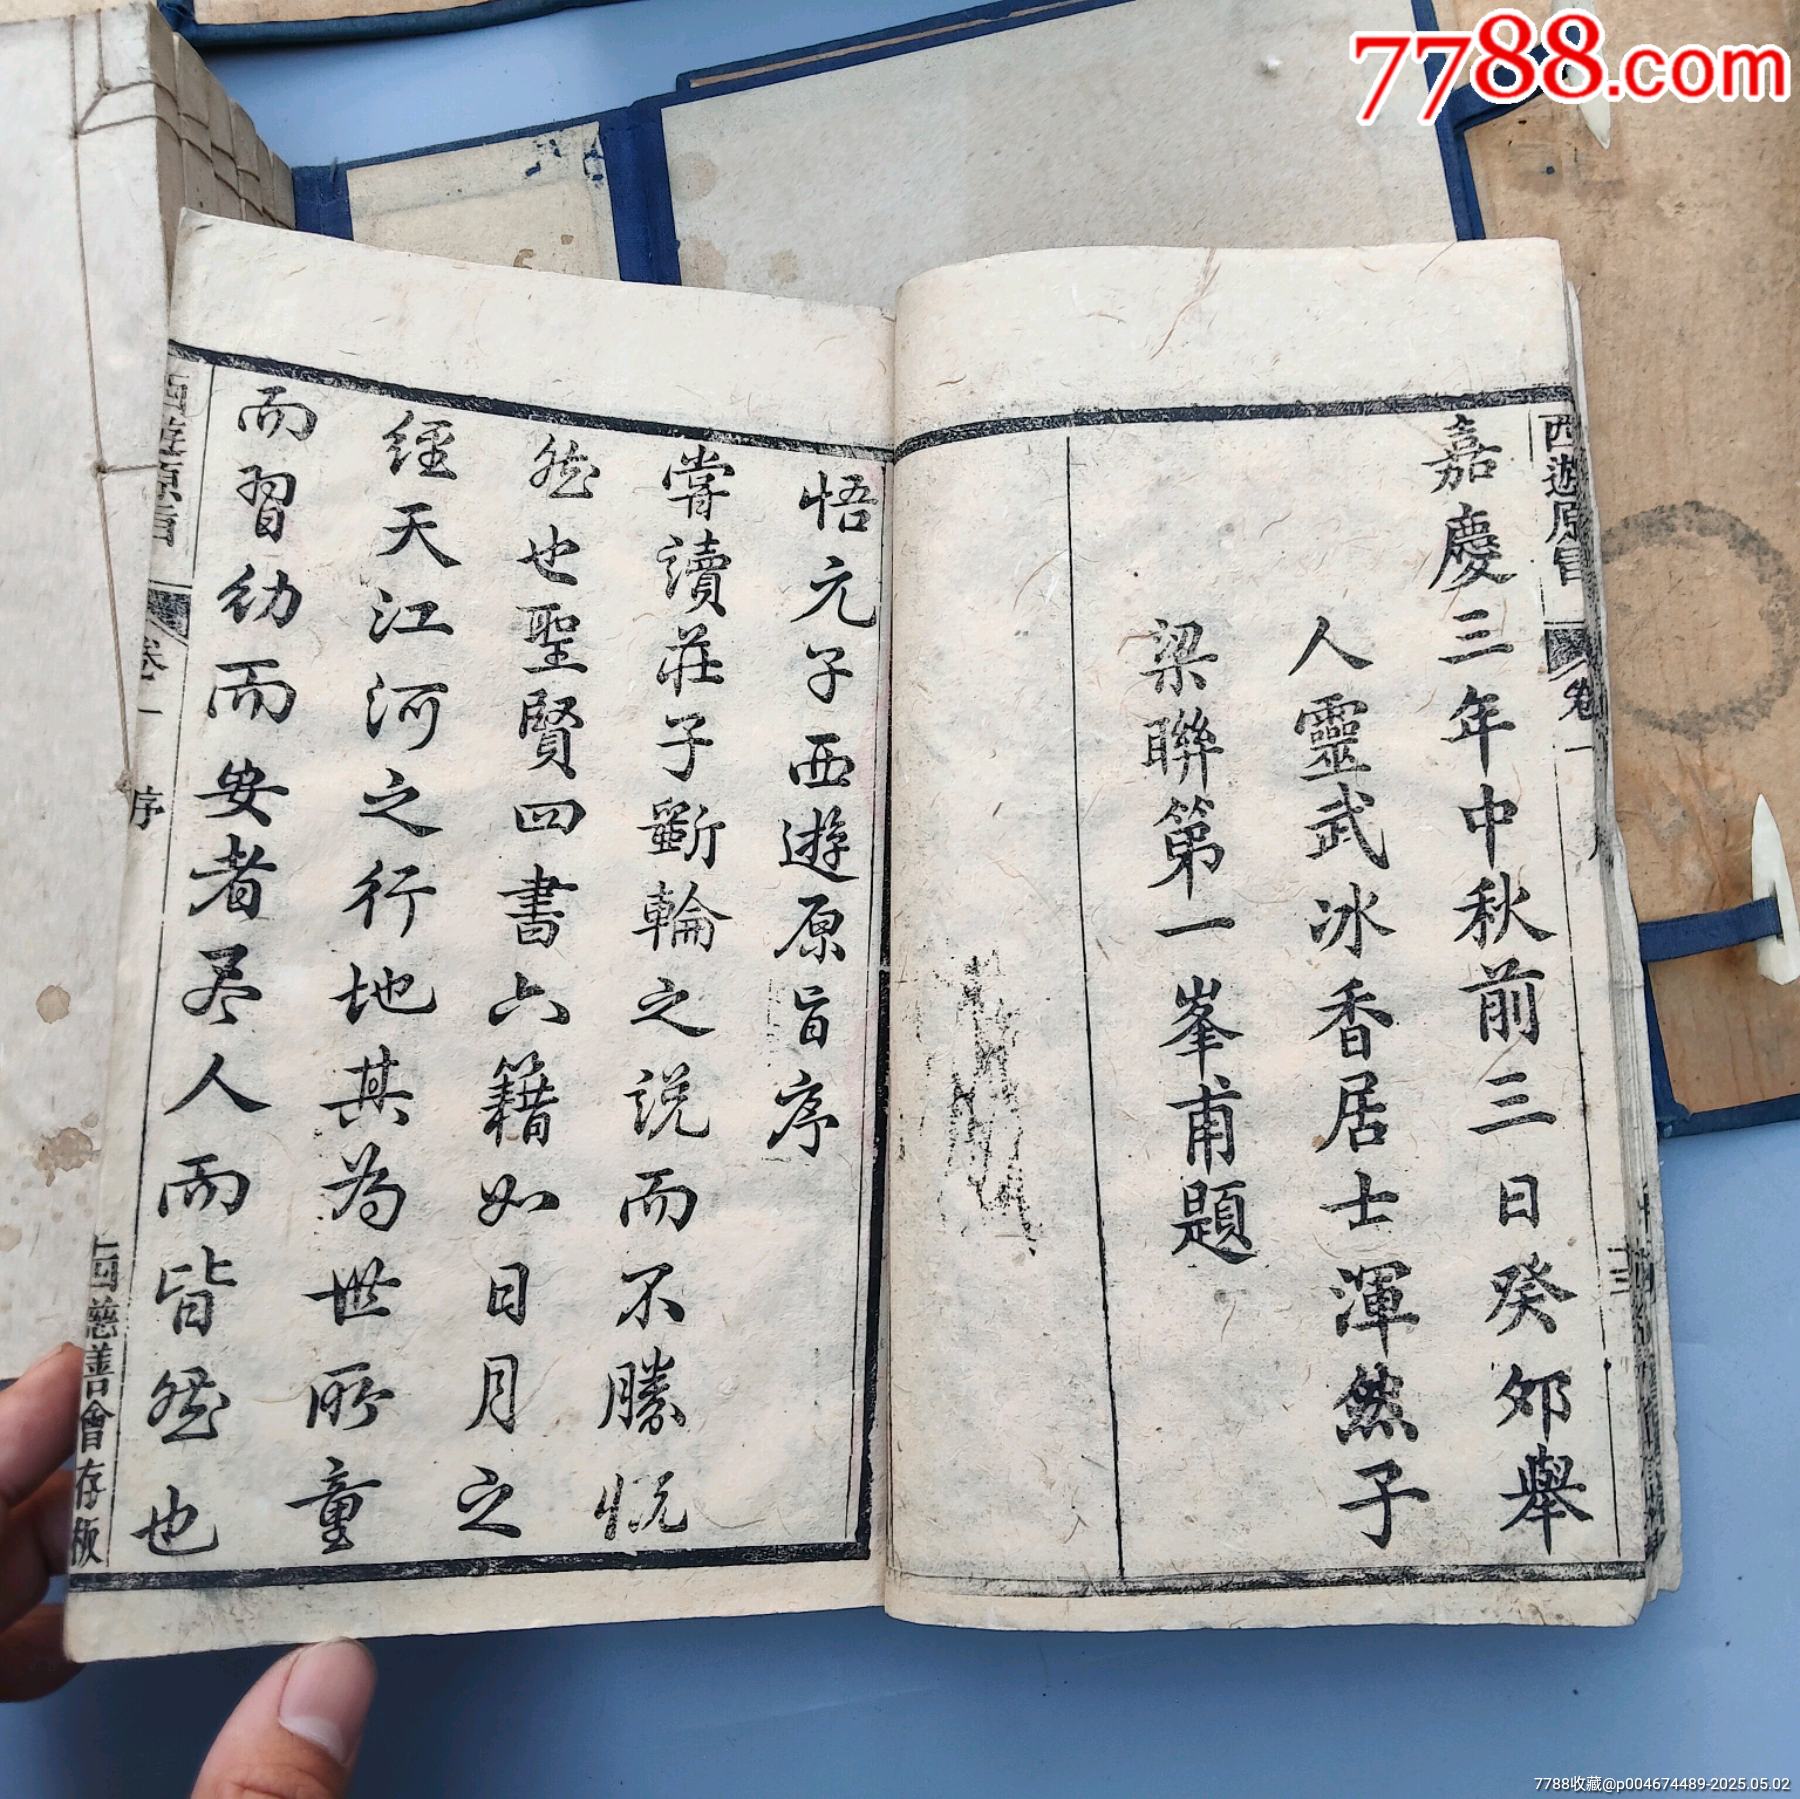 7788.com
西遊原旨
卷一
嘉慶三年中秋前三日癸卯舉
人靈武冰香居士渾然子
梁聯第一峯甫題
悟元子西遊原旨序
嘗讀莊子斲輪之說而不勝悅
然也聖賢四書六籍如日月之
經天江河之行地其為世所童
而習幼而安者尽人而皆然也
西遊原旨
卷一
序
慈善會存板
7788收藏@p004674489-2025.05.02